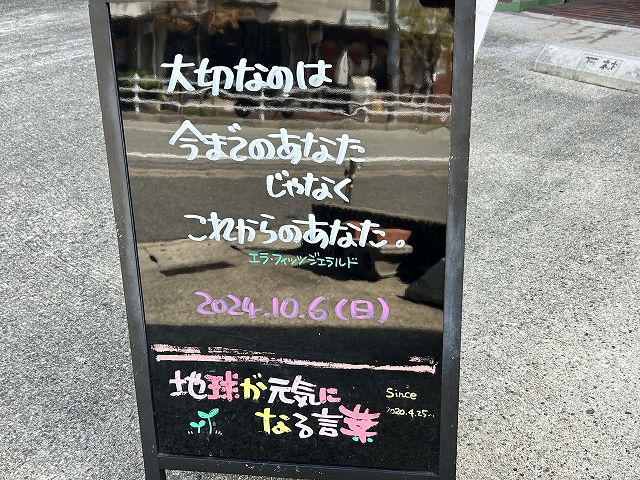 大切なのは
今までのあなた
じゃなく
これからのあなた。
エラ・フィッツジェラルド
2024.10.6(日)
地球が元気に
なる言葉
Since
2020.4.25〜